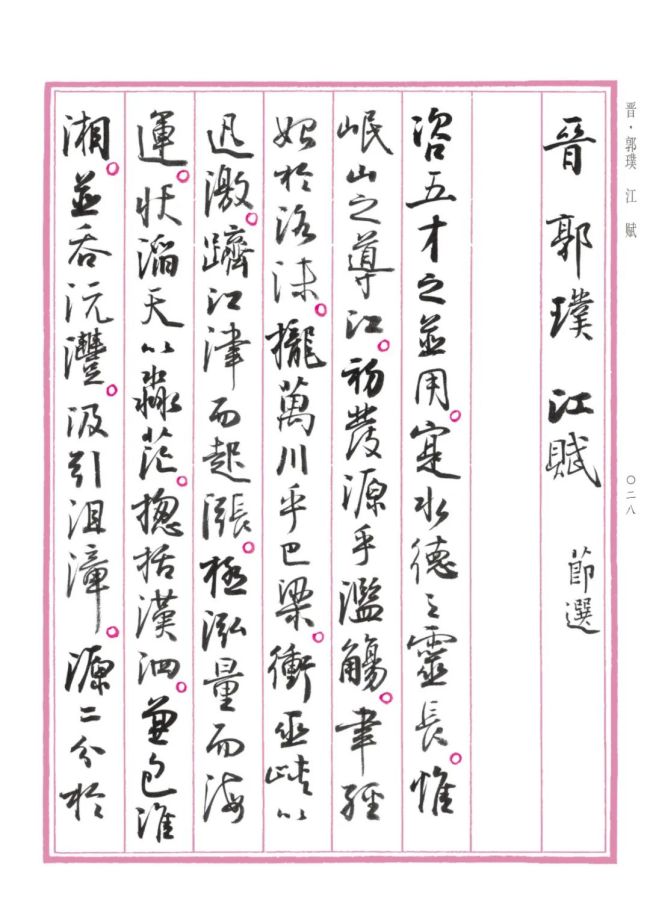 晋·郭璞 江赋
〇二八
晉 郭璞 江賦 節選
咨五才之並用。寔水德之靈長。惟
岷山之導江。初發源乎濫觴。聿經
始於洛沬。攏萬川乎巴梁。衝巫峽以
迅激。躋江津而起漲。極泓量而海
運。狀滔天以淼茫。摠括漢泗。兼包淮
湘。並吞沅灃。汲引沮漳。源二分於